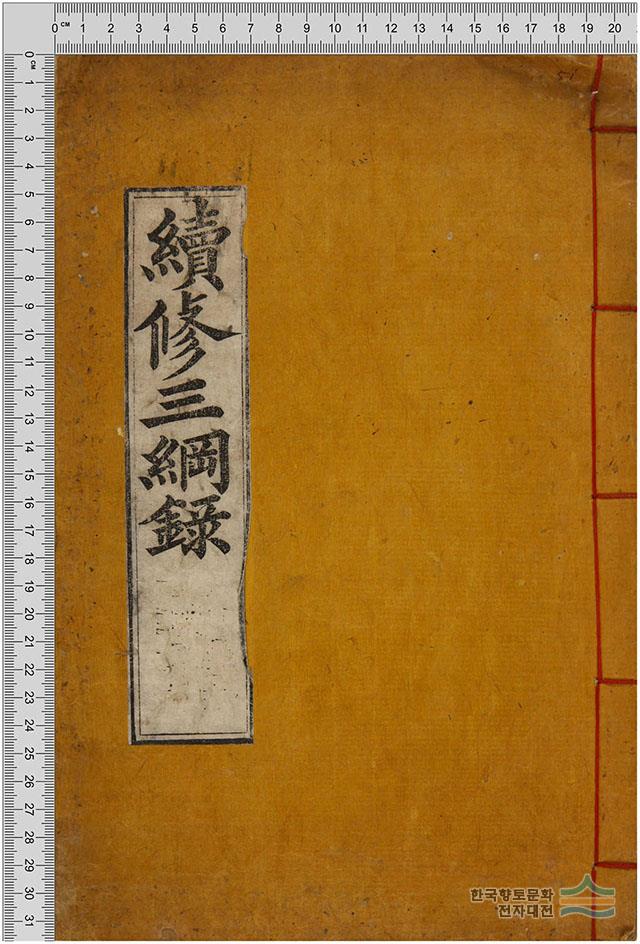 0 CM 1 2 3 4 5 6 7 8 9 10 11 12 13 14 15 16 17 18 19 20
0 CM 1 2 3 4 5 6 7 8 9 10 11 12 13 14 15 16 17 18 19 20 21 22 23 24 25 26 27 28 29 30 31
續修三綱錄
한국향토문화
전자대전